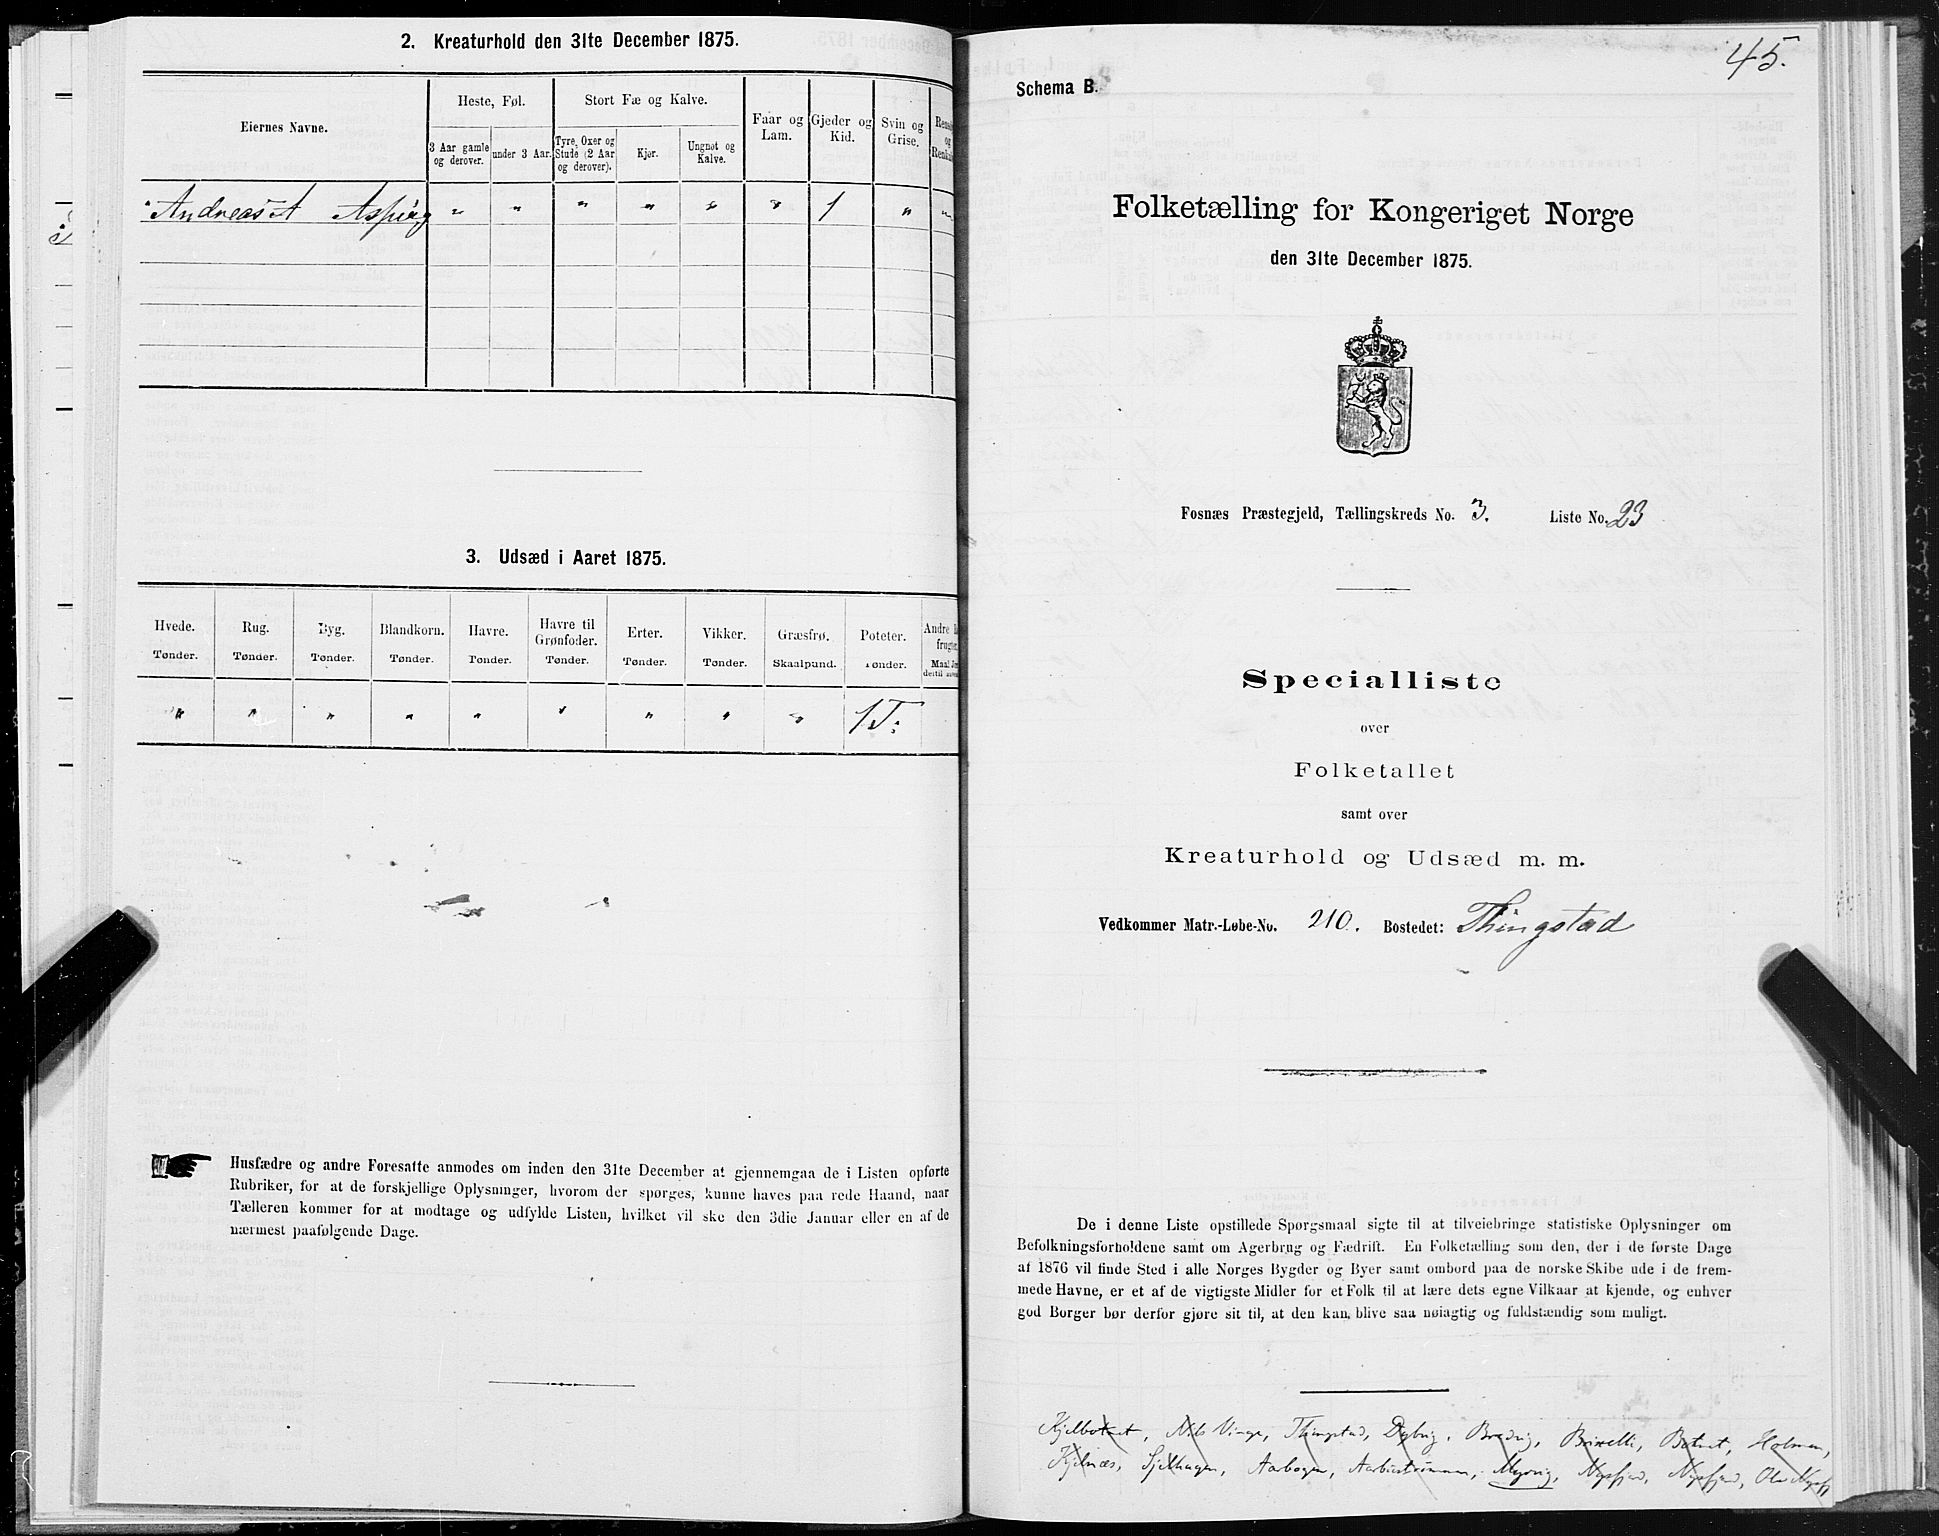 2. Kreaturhold den 31te December 1875.
Eiernes Navne.
Heste, Føl.
Stort Fæ og Kalve.
Faar og Lam.
Gjeder og Kid.
Svin og Grise.
3 Aar gamle og derover.
under 3 Aar.
Tyre, Oxer og Stude (2 Aar og derover).
Kjør.
Ungnøt og Kalve.
Andreas A Aspvig " " " " " " 1 " "
3. Udsæd i Aaret 1875.
Hvede. Rug. Byg. Blandkorn. Havre. Havre til Grønfoder. Erter. Vikker. Græsfrø. Poteter.
Tønder. Tønder. Tønder. Tønder. Tønder. Tønder. Tønder. Tønder. Skaalpund. Tønder.
" " " " " " " " " 1 T:
Husfædre og andre Foresatte anmodes om inden den 31te December at gjennemgaa de i Listen opførte
Rubriker, for at de forskjellige Oplysninger, hvorom der spørges, kunne haves paa rede Haand, naar
Tælleren kommer for at modtage og udfylde Listen, hvilket vil ske den 3die Januar eller en af de
nærmest paafølgende Dage.
45.
Schema B.
Folketælling for Kongeriget Norge
den 31te December 1875.
Fosnæs Præstegjeld, Tællingskreds No. 3. Liste No. 23
Specialliste
over
Folketallet
samt over
Kreaturhold og Udsæd m. m.
Vedkommer Matr.-Løbe-No. 210. Bostedet: Thingstad
De i denne Liste opstillede Spørgsmaal sigte til at tilveiebringe statistiske Oplysninger om
Befolkningsforholdene samt om Agerbrug og Fædrift. En Folketælling som den, der i de første Dage
af 1876 vil finde Sted i alle Norges Bygder og Byer samt ombord paa de norske Skibe ude i de frem-
mede Havne, er et af de vigtigste Midler for et Folk til at lære dets egne Vilkaar at kjende, og enhver
god Borger bør derfor gjøre sit til, at den kan blive saa nøiagtig og fuldstændig som muligt.
Kjelbotnet, Thingstad, Dybvig, Botnet, Holmen,
Kjelnæs, Sjelhagen, Aarbogen, Myrvig, Nypfjord, Nypfjord,